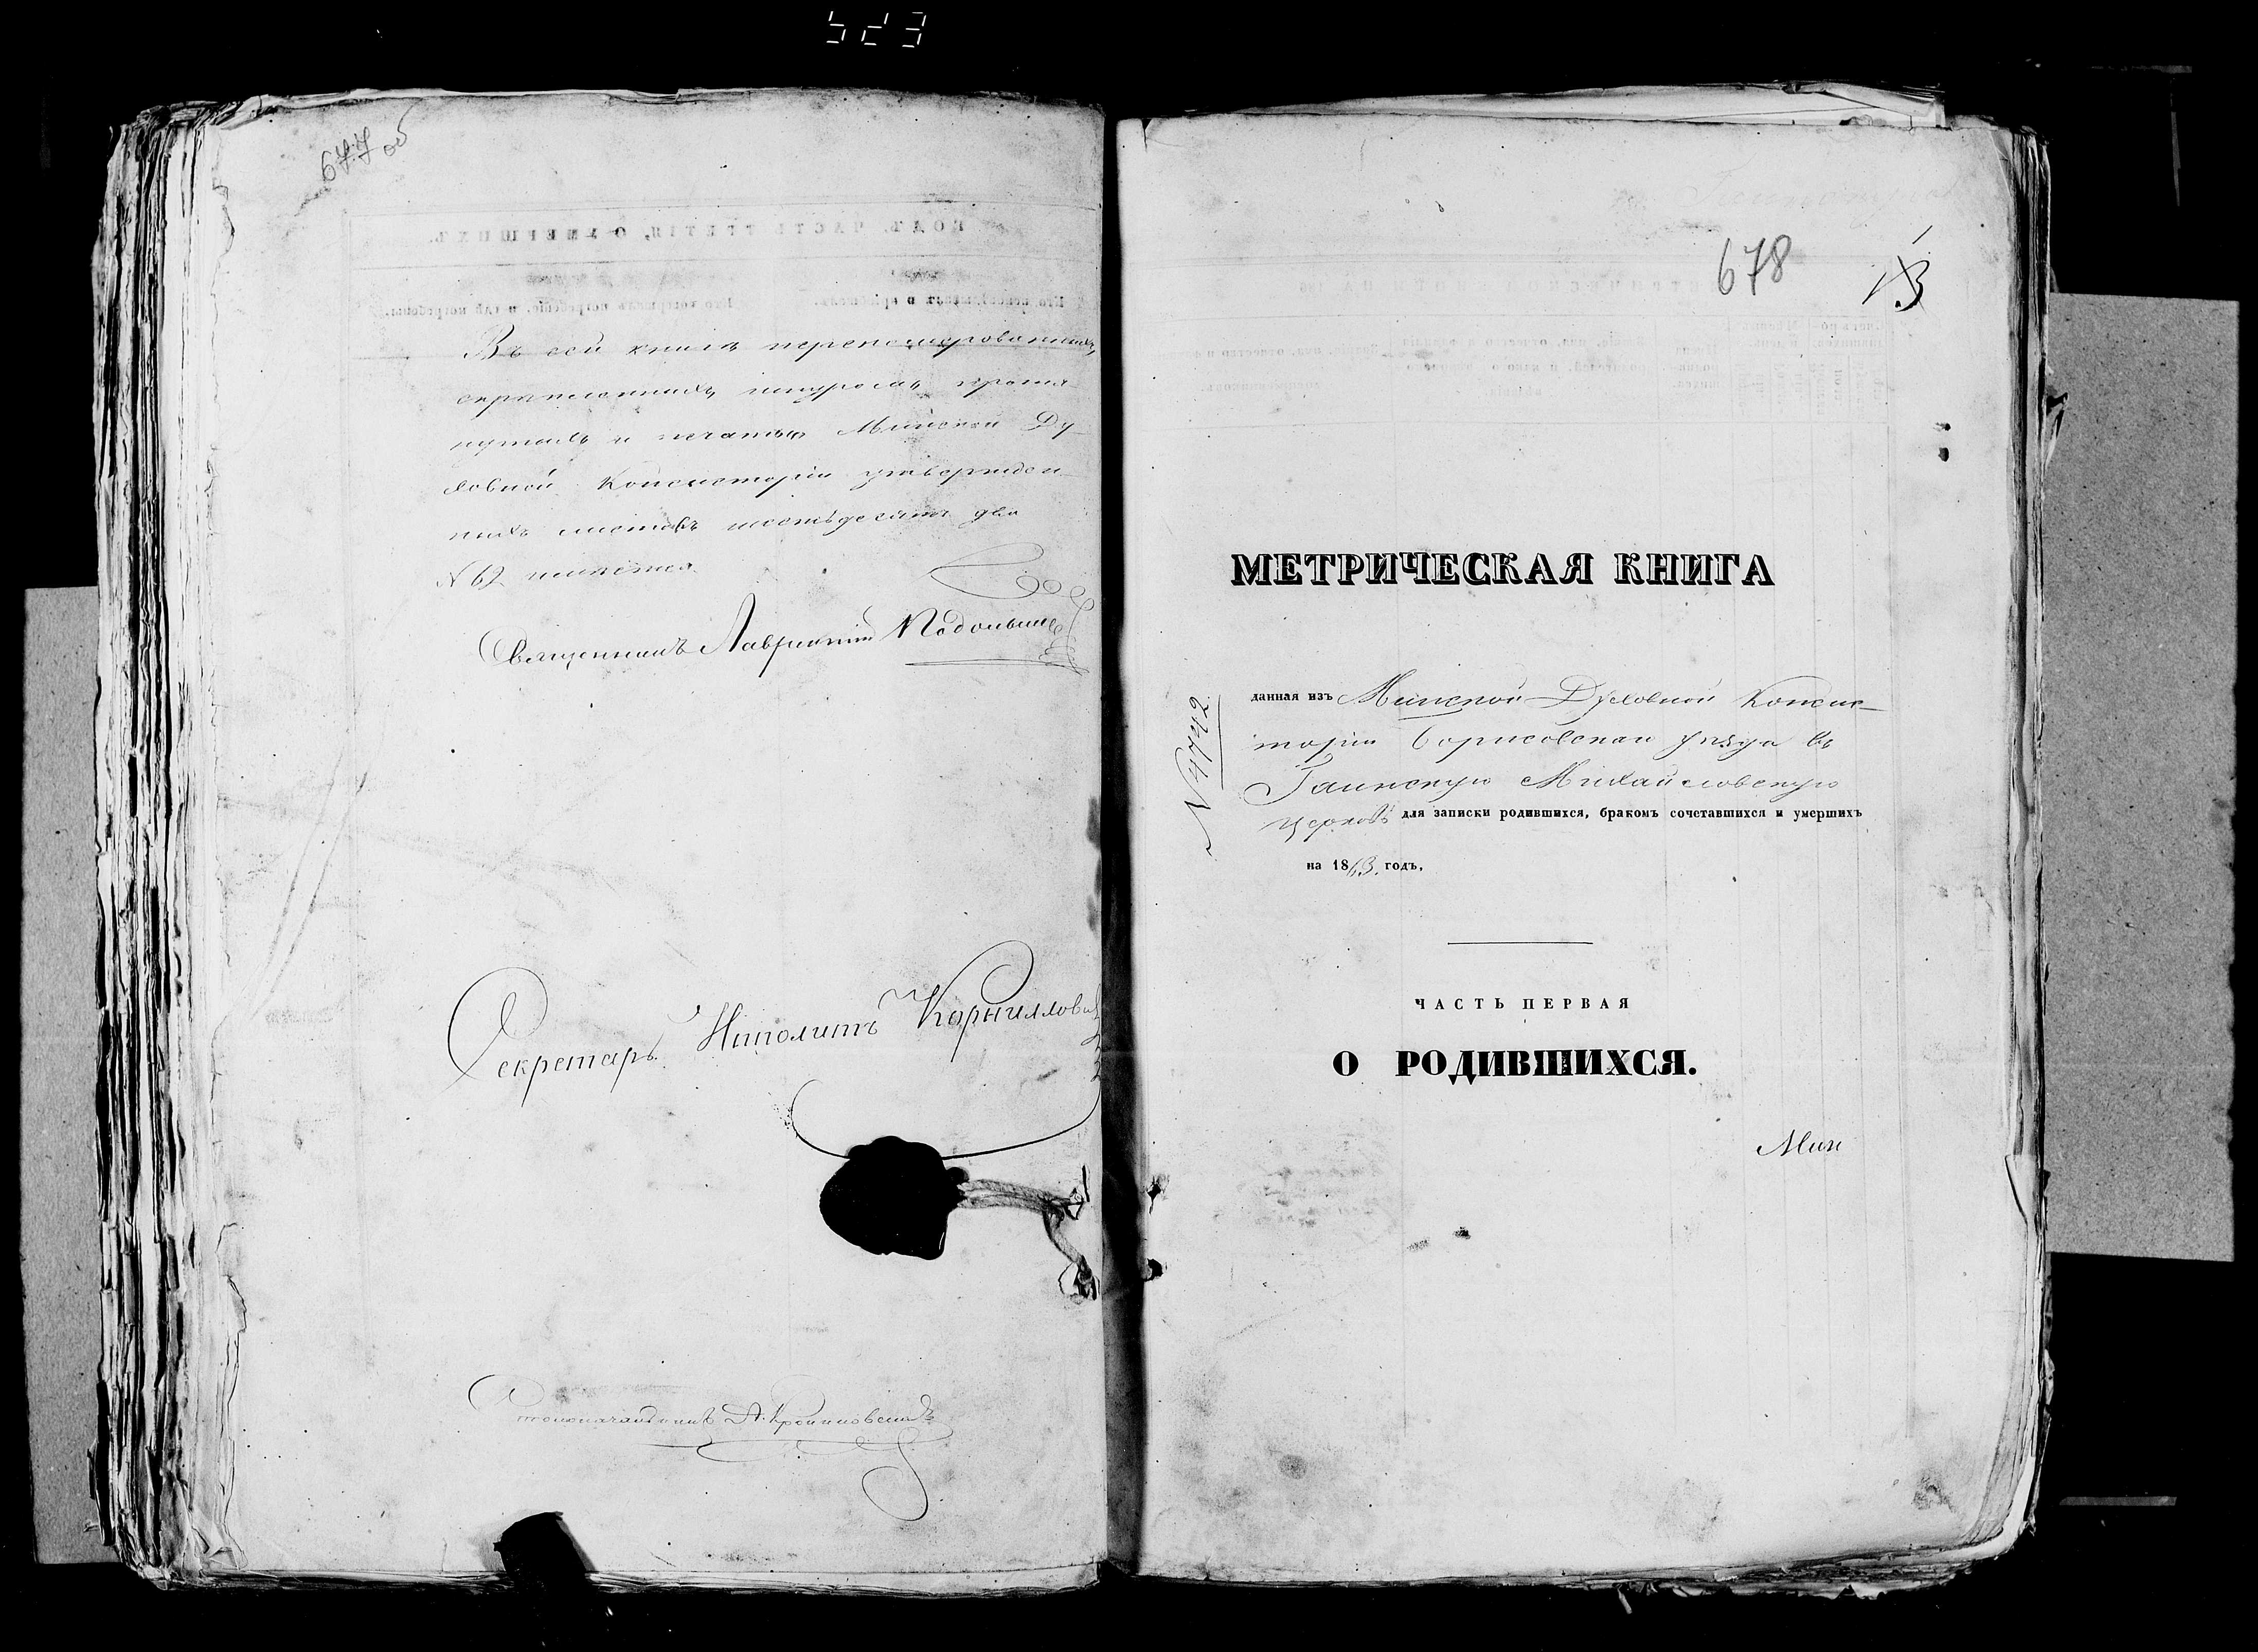 523
677 об
Въ сей книгѣ перенумерованныхъ,
скрѣпленныхъ шнуромъ, прошн
нутыхъ и печатью Минской Ду-
ховной Консисторіи утвержден-
ныхъ листовъ шестьдесятъ два
N 62 имѣется
Священникъ Лаврентій
Секретарь Иполитъ Корниллови
Столоначальникъ А.
678
1
13
МЕТРИЧЕСКАЯ КНИГА
N 4742
данная изъ Минской Духовной Консис-
торіи Борисовскаго уѣзда въ
Гаинскую Михайловскую
церковь для записки родившихся, бракомъ сочетавшихся и умершихъ
на 1863. годъ.
ЧАСТЬ ПЕРВАЯ
О РОДИВШИХСЯ.
Мин